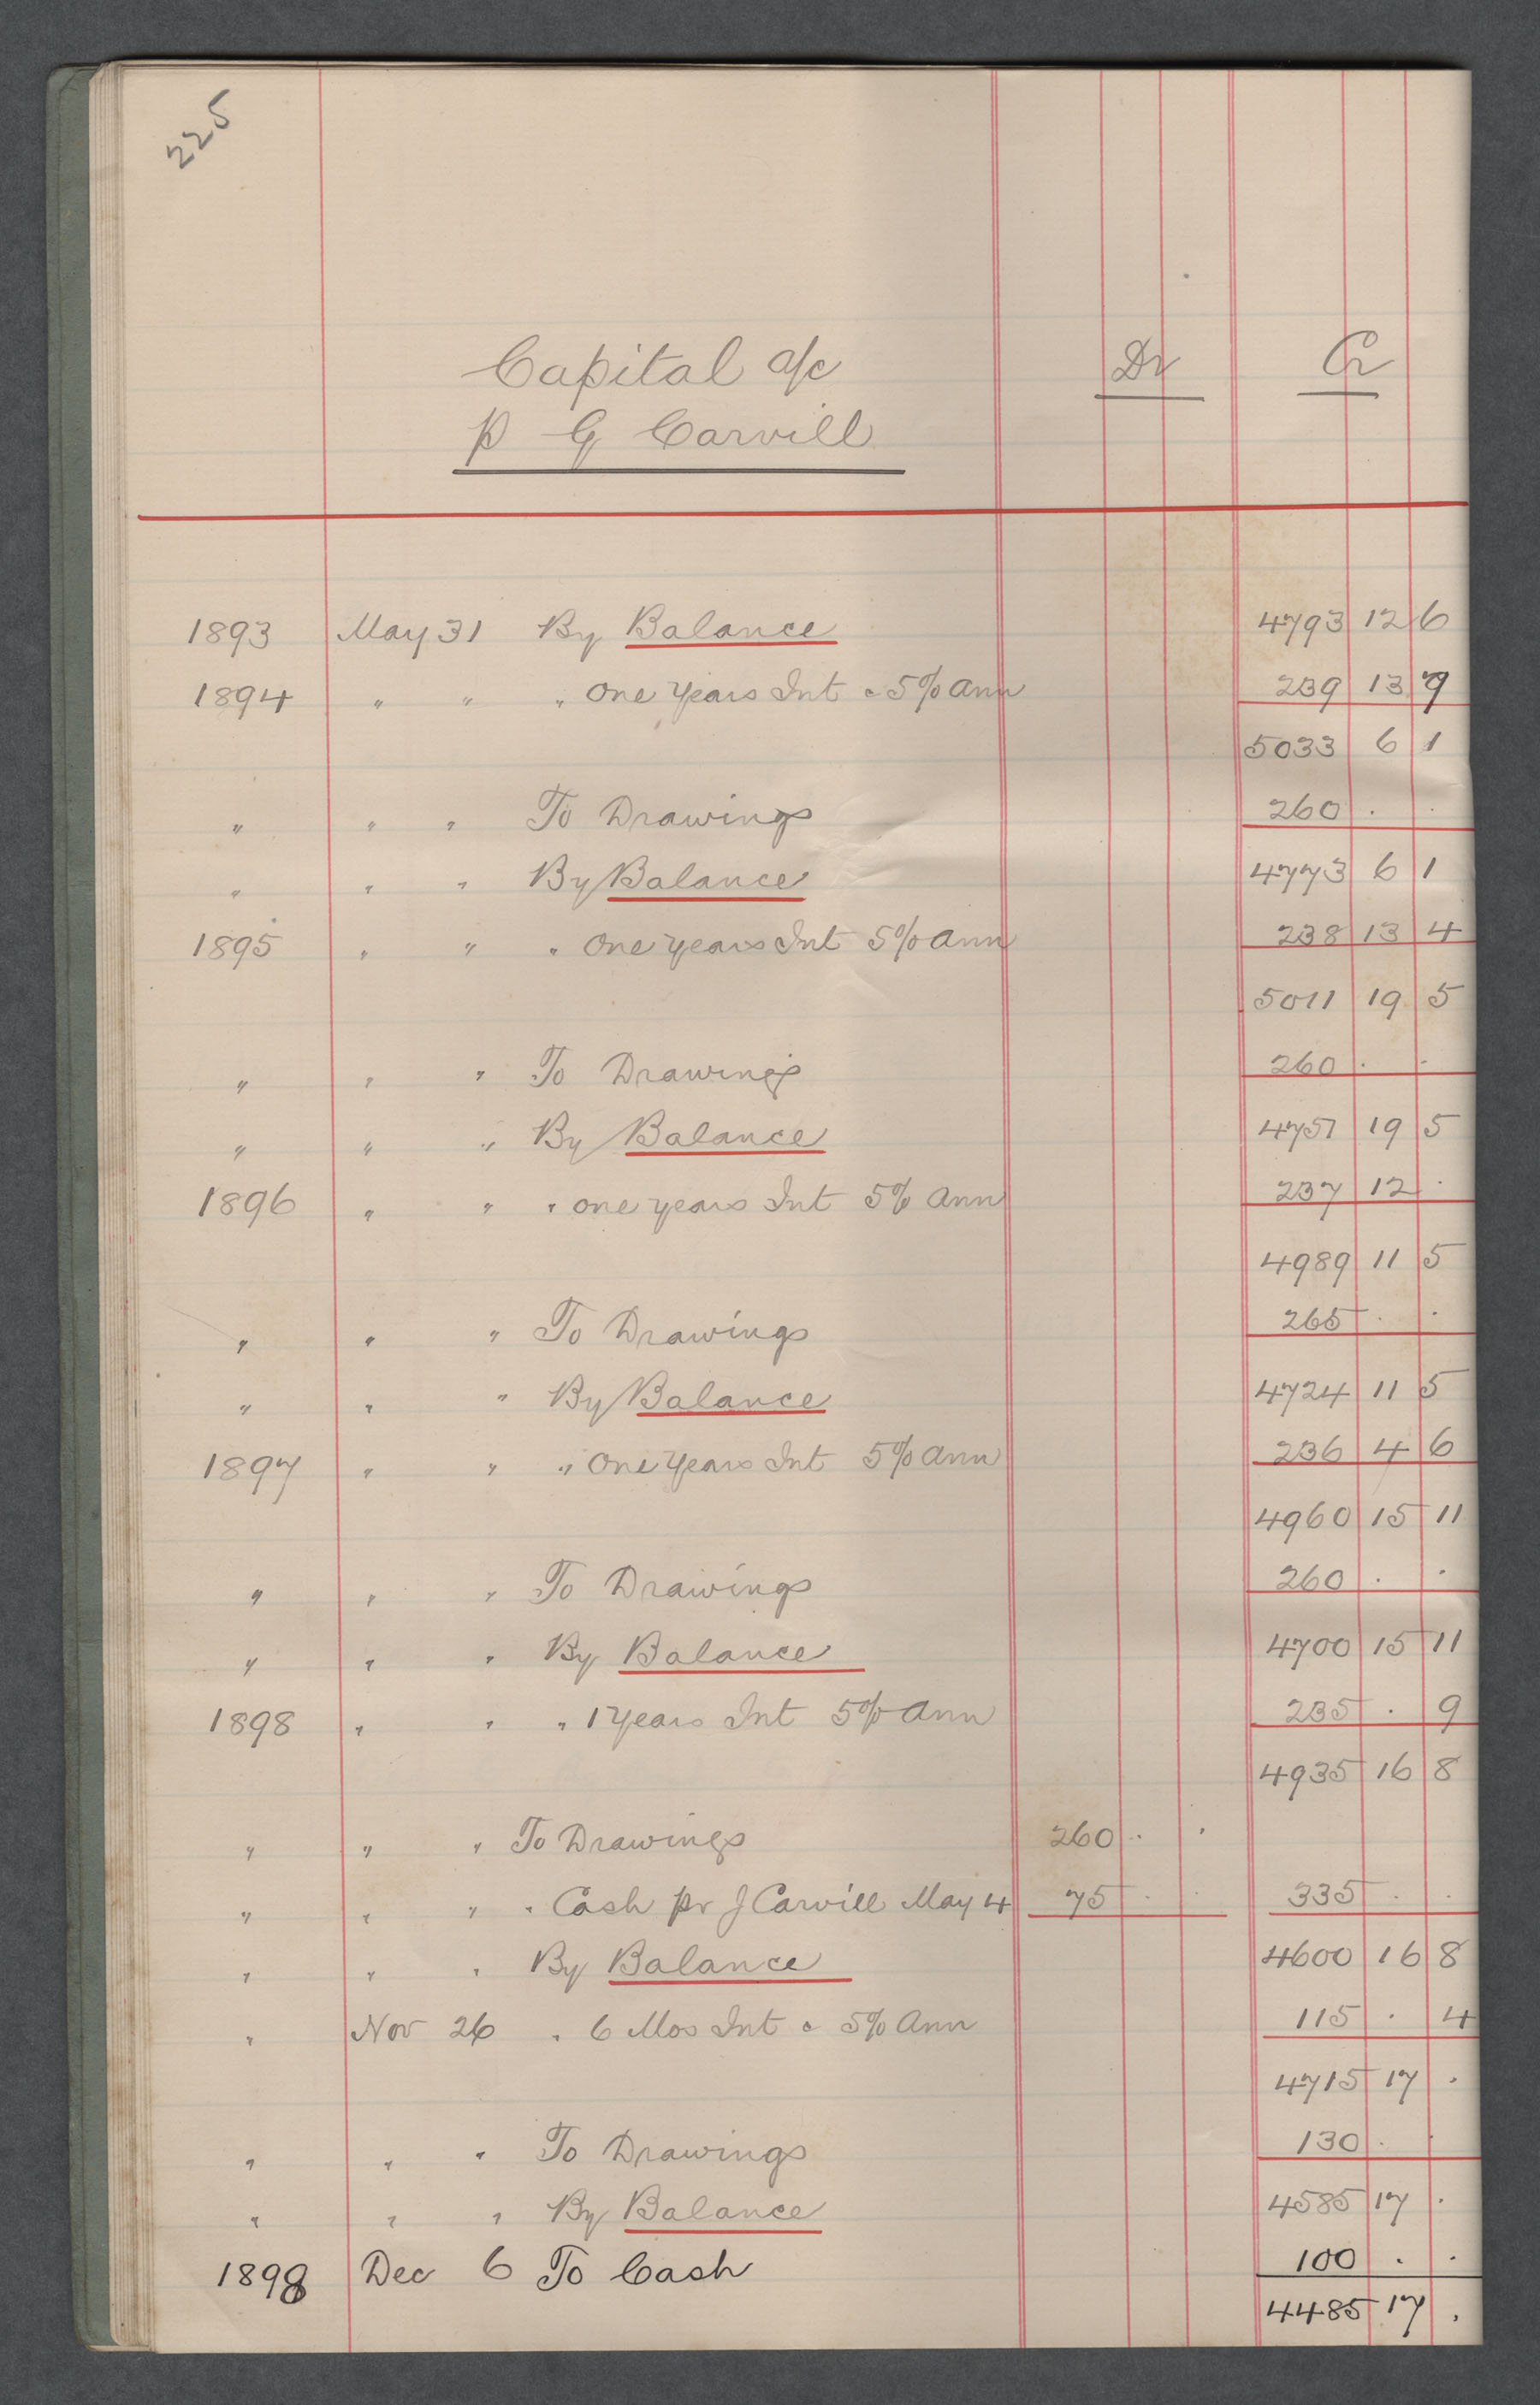 225
Capital a/c Dr Cr
P G Carvill
1893 May 31 By Balance 4793 12 6
1894 " " " One Years Int @ 5% Ann 239 13 7
5033 6 1
" " " To Drawings 260 . .
" " " By Balance 4773 6 1
1895 " " " One years Int 5% Ann 238 13 4
5011 19 5
" " " To Drawings 260 . .
" " " By Balance 4751 19 5
1896 " " " one years Int 5% Ann 237 12 .
4989 11 5
" " " To Drawings 265 . .
" " " By Balance 4724 11 5
1897 " " " One Years Int 5% Ann 236 4 6
4960 15 11
" " " To Drawings 260 . .
" " " By Balance 4700 15 11
1898 " " " 1 Years Int 5% Ann 235 . 9
4935 16 8
" " " To Drawings 260 . .
" " " " Cash pr J Carvill May 4 75 . . 335 . .
" " " By Balance 4600 16 8
" Nov 26 " 6 Mos Int @ 5% Ann 115 . 4
4715 17 .
" " " To Drawings 130 . .
" " " By Balance 4585 17 .
1898 Dec 6 To Cash 100 . .
4485 17 .